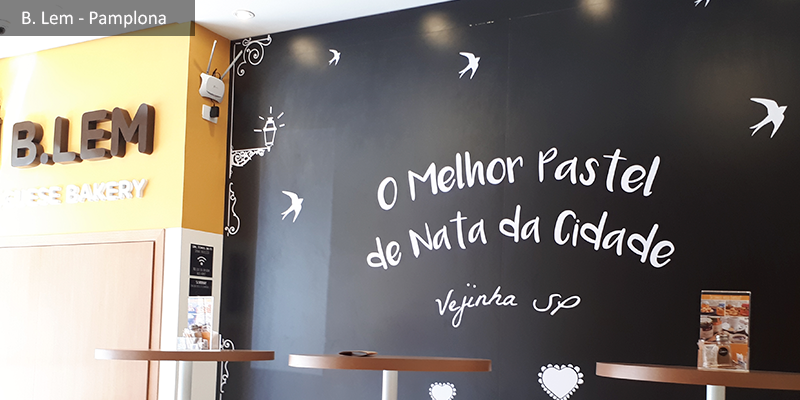 B. Lem - Pamplona
B.LEM
BAKERY
O Melhor Pastel
de Nata da Cidade
Vejinha SP